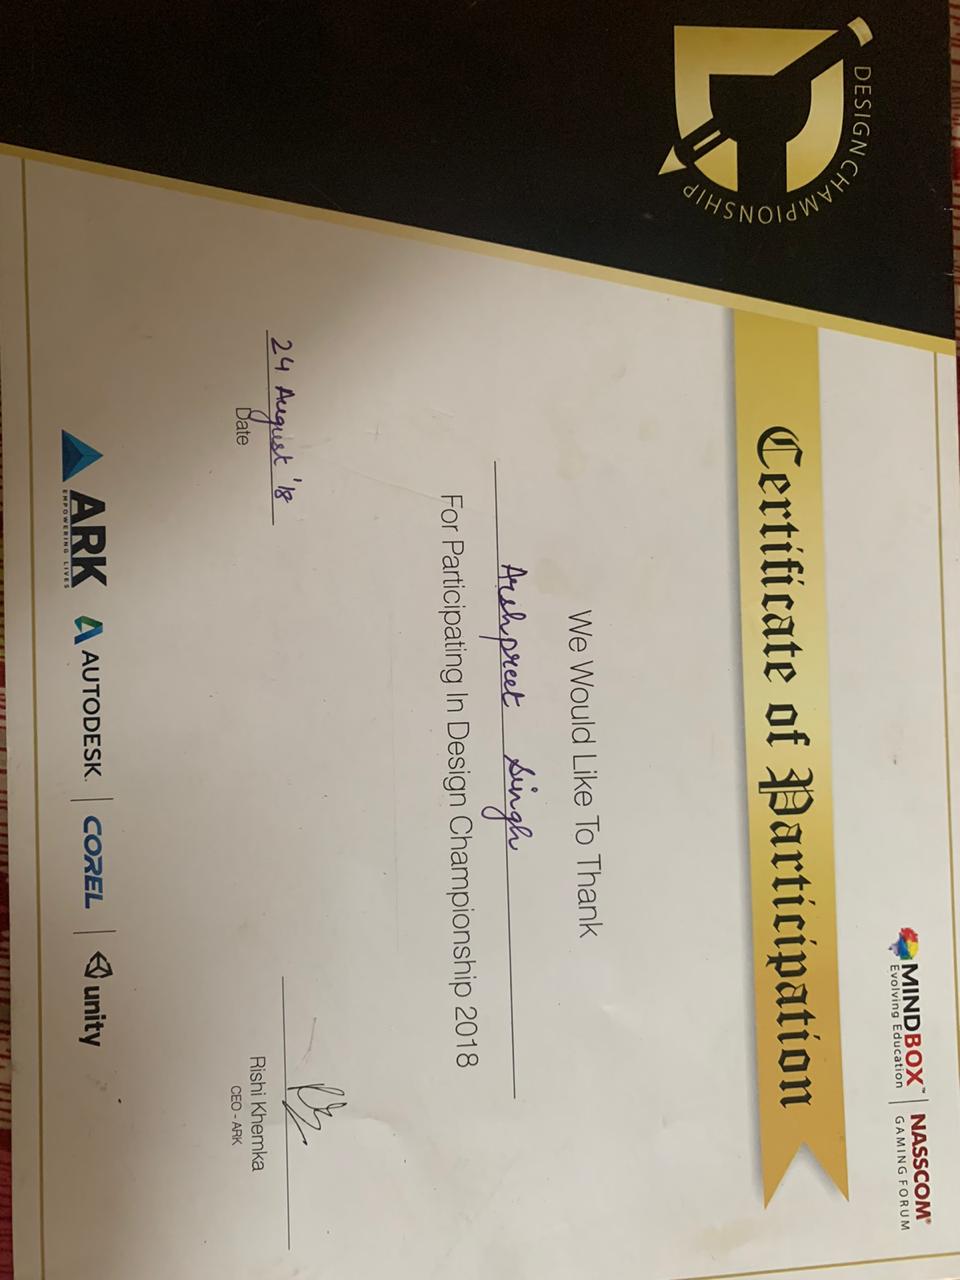 DESIGN CHAMPIONSHIP
MINDBOX™ | NASSCOM®
Evolving Education | GAMING FORUM
Certificate of Participation
We Would Like To Thank
Arshpreet Singh
For Participating In Design Championship 2018
24 August '18
Date
Rishi Khemka
CEO - ARK
ARK
EMPOWERING LIVES
AUTODESK.
COREL
unity